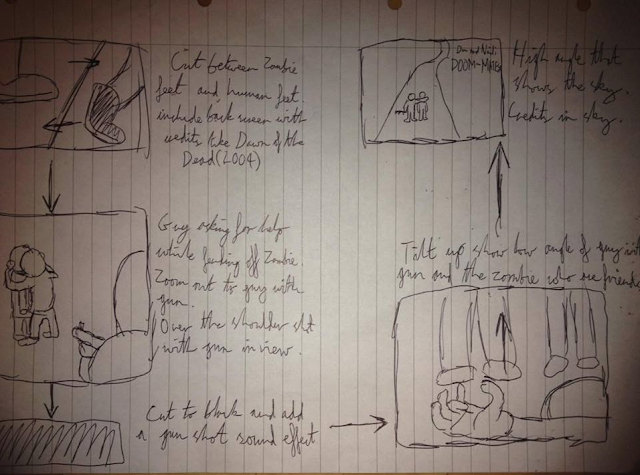 Cut between Zombie
feet and human feet.
include back screen with
credits like Dawn of the
Dead (2004)
Guy asking for help
while fending off Zombie
Zoom out to guy with
gun.
Over the shoulder shot
with gun in view.
Cut to black and add
a gun shot sound effect
Tilt up show low angle of guy with
gun and the zombie who are friends
DOOM-MATES
High angle that
shows the sky.
Credits in sky.